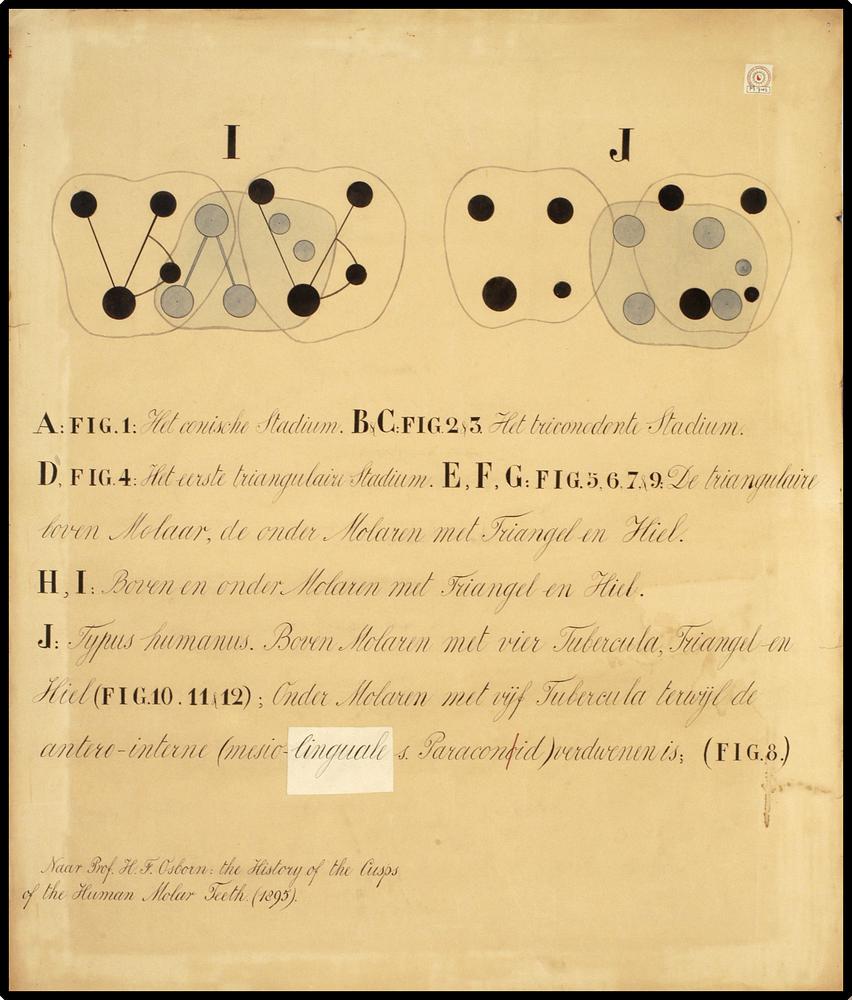 I J
A: FIG. 1: Het conische Stadium. B & C: FIG. 2 & 3. Het triconodonte Stadium.
D, FIG. 4: Het eerste triangulaire Stadium. E, F, G: FIG. 5, 6, 7, & 9: De triangulaire
boven Molaar, de onder Molaren met Triangel en Hiel.
H, I: Boven en onder Molaren met Triangel en Hiel.
J: Typus humanus. Boven Molaren met vier Tubercula, Triangel en
Hiel (FIG. 10. 11 & 12); Onder Molaren met vijf Tubercula terwijl de
antero-interne (mesio-linguale s. Paraconid) verdwenen is; (FIG. 8.)
Naar Prof. H. F. Osborn: the History of the Cusps
of the Human Molar Teeth. (1895).